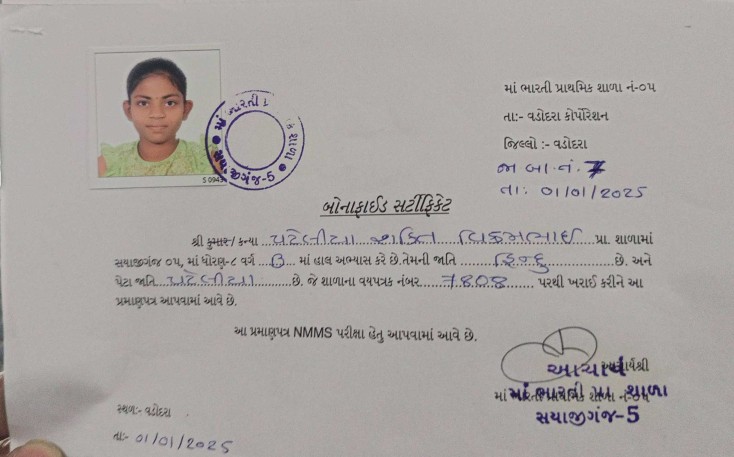 માં ભારતી પ્રાથમિક શાળા નં-૦૫
તા:- વડોદરા કોર્પોરેશન
જિલ્લો :- વડોદરા
જા.બા.નં. 7
તા: 01/01/2025
સયાજીગંજ-5
બોનાફાઈડ સર્ટીફિકેટ
શ્રી કુમાર/ કન્યા પટેલીયા શક્તિ વિક્રમભાઈ પ્રા. શાળામાં
સયાજીગંજ ૦૫, માં ધોરણ-૮ વર્ગ B માં હાલ અભ્યાસ કરે છે.તેમની જાતિ હિન્દુ છે. અને
પેટા જાતિ પટેલીયા છે. જે શાળાના વયપત્રક નંબર 7808 પરથી ખરાઈ કરીને આ
પ્રમાણપત્ર આપવામાં આવે છે.
આ પ્રમાણપત્ર NMMS પરીક્ષા હેતુ આપવામાં આવે છે.
આચાર્યશ્રી
આચાર્ય
માં ભારતી પ્રા. શાળા
માં ભારતી પ્રાથમિક શાળા નં-૦૫
સયાજીગંજ-5
સ્થળ:- વડોદરા
તા:- 01/01/2025